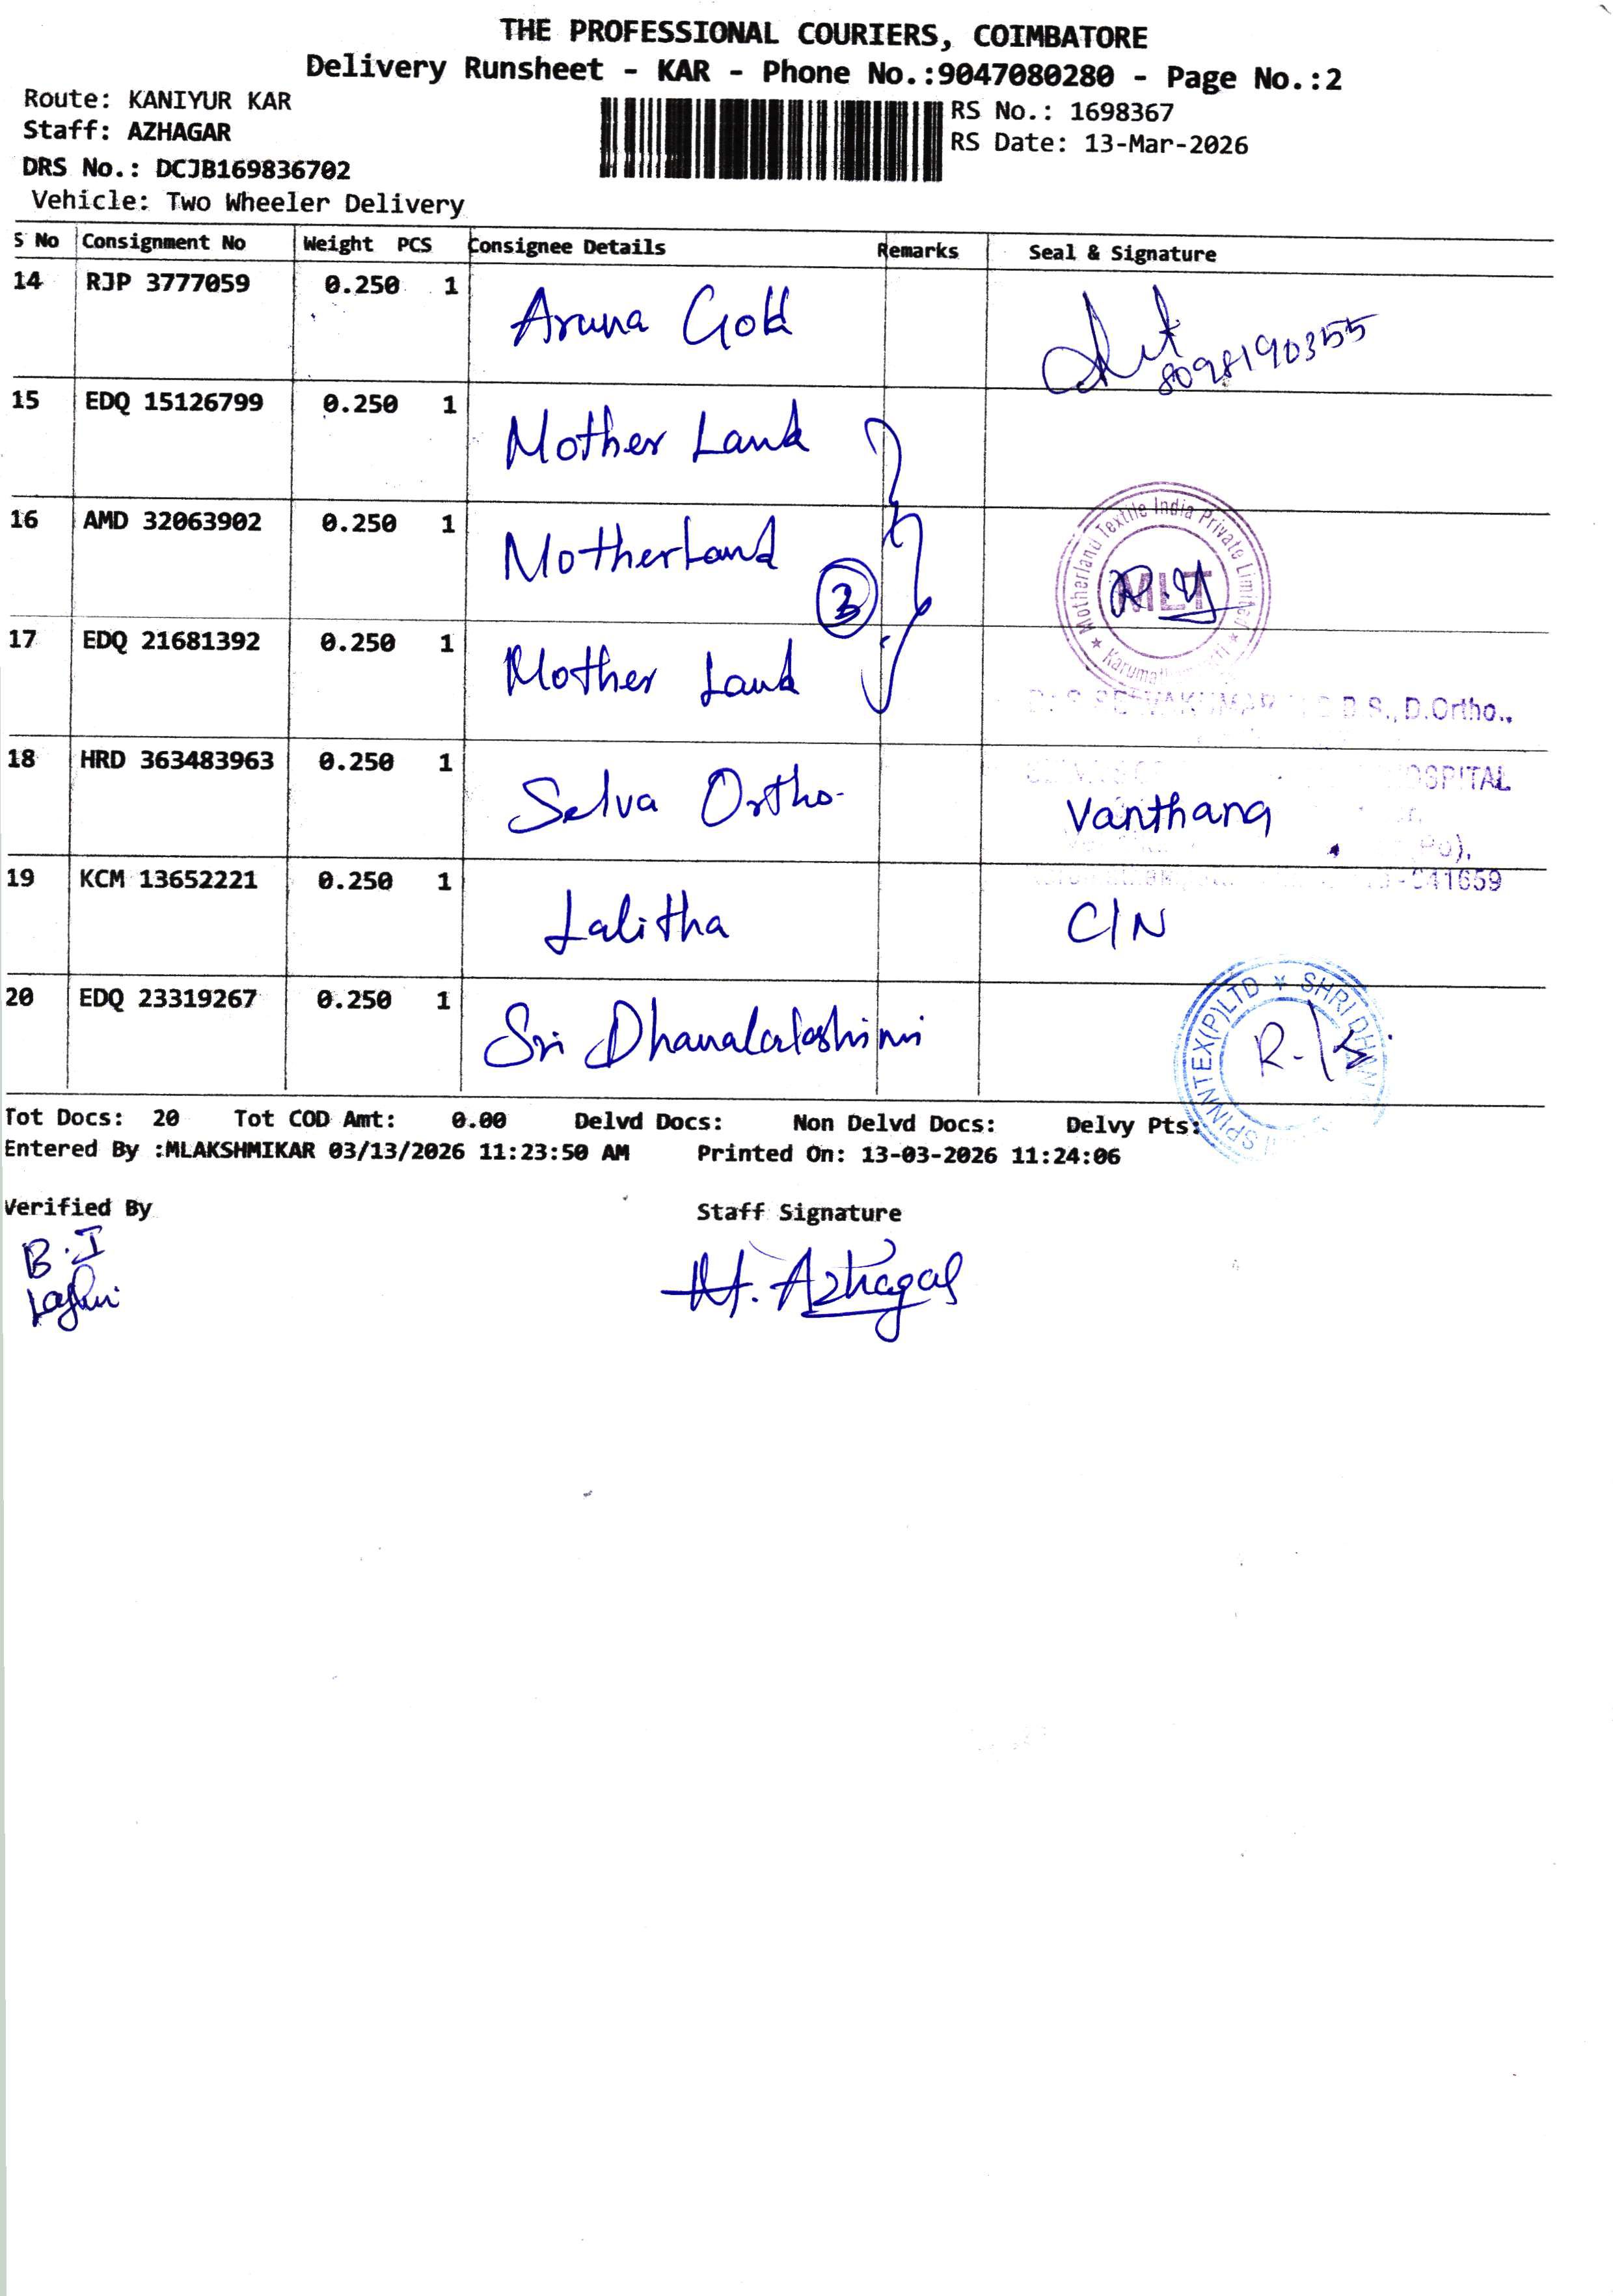 THE PROFESSIONAL COURIERS, COIMBATORE
Delivery Runsheet - KAR - Phone No.:9047080280 - Page No.:2
Route: KANIYUR KAR
RS No.: 1698367
Staff: AZHAGAR
RS Date: 13-Mar-2026
DRS No.: DCJB169836702
Vehicle: Two Wheeler Delivery
S No Consignment No Weight PCS Consignee Details Remarks Seal & Signature
14 RJP 3777059 0.250 1 Aruna Gold 8098190355
15 EDQ 15126799 0.250 1 Mother Land
16 AMD 32063902 0.250 1 Motherland
3
Motherland Textile India Private Limited
MLT
17 EDQ 21681392 0.250 1 Mother Land
D.S., D.Ortho.,
18 HRD 363483963 0.250 1 Selva Ortho. Vanthana
HOSPITAL
(Po),
641659
19 KCM 13652221 0.250 1 Lalitha C/N
20 EDQ 23319267 0.250 1 Sri Dhanalakshimi
SPINNTEX(P)LTD * SHRI
Tot Docs: 20 Tot COD Amt: 0.00 Delvd Docs: Non Delvd Docs: Delvy Pts:
Entered By :MLAKSHMIKAR 03/13/2026 11:23:50 AM Printed On: 13-03-2026 11:24:06
Verified By Staff Signature
B.I
M. Azhagar